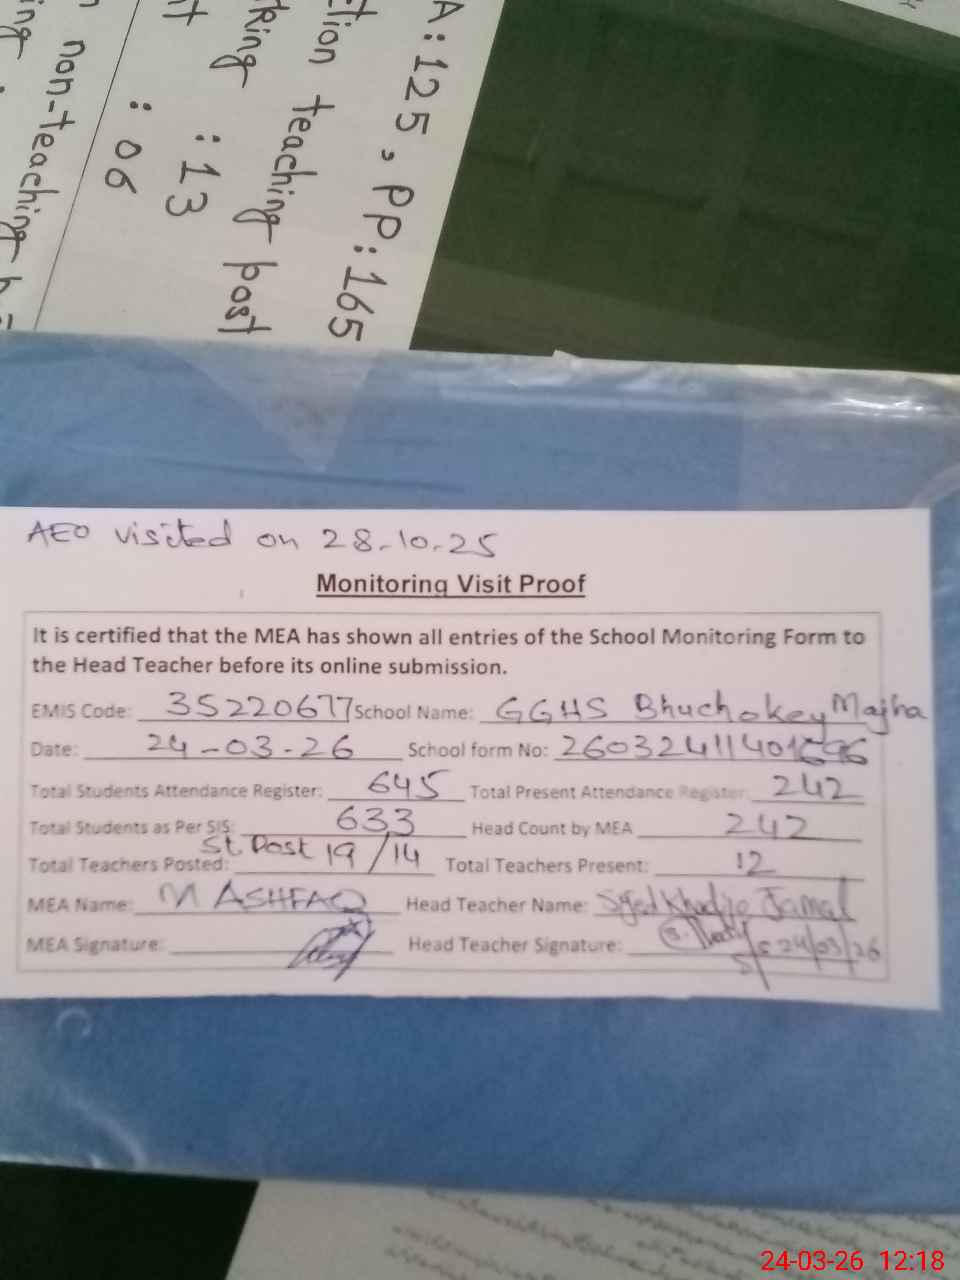 A:125, PP:165
tion teaching post
:13
:06
non-teaching
AEO visited on 28-10-25
Monitoring Visit Proof
It is certified that the MEA has shown all entries of the School Monitoring Form to
the Head Teacher before its online submission.
EMIS Code: 35220677 School Name: GGHS Bhuchokey Majha
Date: 24-03-26 School form No:
Total Students Attendance Register: 645 Total Present Attendance Register: 242
Total Students as Per SIS: 633 Head Count by MEA 242
Total Teachers Posted: St Post 19/14 Total Teachers Present: 12
MEA Name: M ASHFAQ Head Teacher Name: Syed Khadija Jamal
MEA Signature: Head Teacher Signature: 24/03/26
24-03-26 12:18